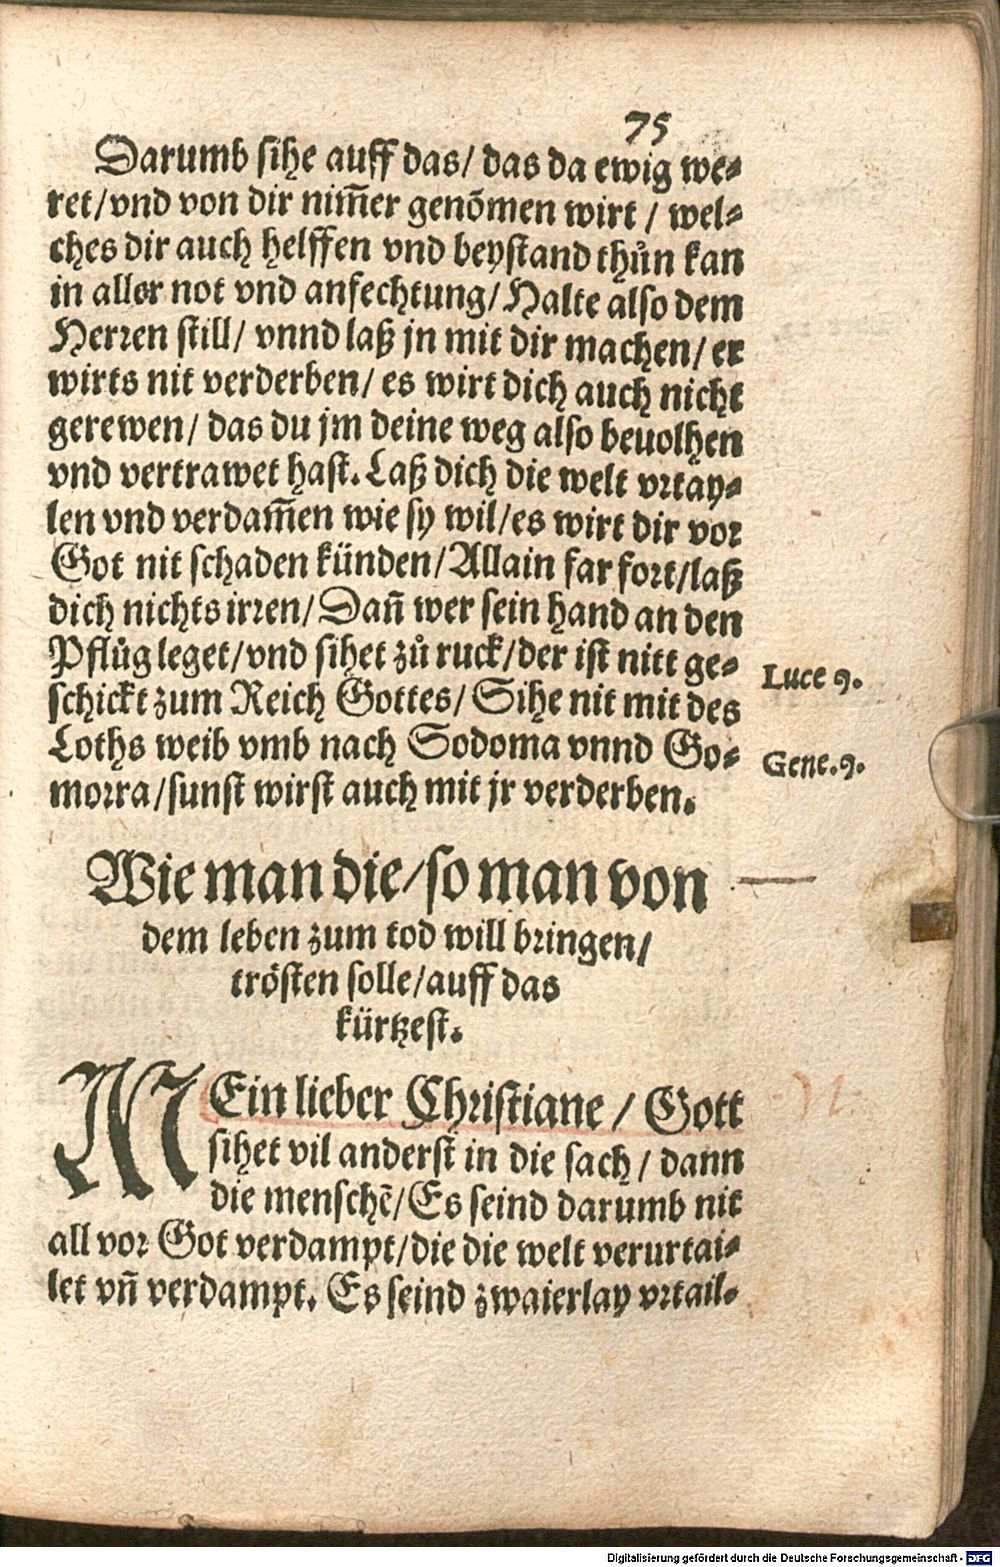 75
Darumb ſihe auff das/ das da ewig we⸗
ret/vnd von dir nim̄er genõmen wirt / wel⸗
ches dir auch helffen vnd beyſtand thůn kan
in aller not vnd anfechtung/ Halte alſo dem
Herꝛen ſtill/ vnnd laß jn mit dir machen/ er
wirts nit verderben/ es wirt dich auch nicht
gerewen/ das du jm deine weg alſo beuolhen
vnd vertrawet haſt. Laß dich die welt vꝛtay⸗
len vnd verdam̄en wie ſy wil/es wirt dir voꝛ
Got nit ſchaden künden/Allain far foꝛt/laß
dich nichts irꝛen/ Dañ wer ſein hand an den
Pflůg leget/vnd ſihet zů ruck/der iſt nitt ge⸗
ſchickt zum Reich Gottes/ Sihe nit mit des
Luce 9.
Loths weib vmb nach Sodoma vnnd Go⸗
Gene.9.
moꝛra/ſunſt wirſt auch mit jr verderben.
Wie man die/ſo man von
dem leben zum tod will bꝛingen/
tröſten ſolle/auff das
kürtzeſt.
MEin lieber Chꝛiſtiane / Gott
ſihet vil anderſt in die ſach/ dann
die menſchẽ/Es ſeind darumb nit
all voꝛ Got verdampt/die die welt verurtai⸗
let vñ verdampt. Es ſeind zwaierlay vꝛtail⸗
Digitalisierung gefördert durch die Deutsche Forschungsgemeinschaft - DFG